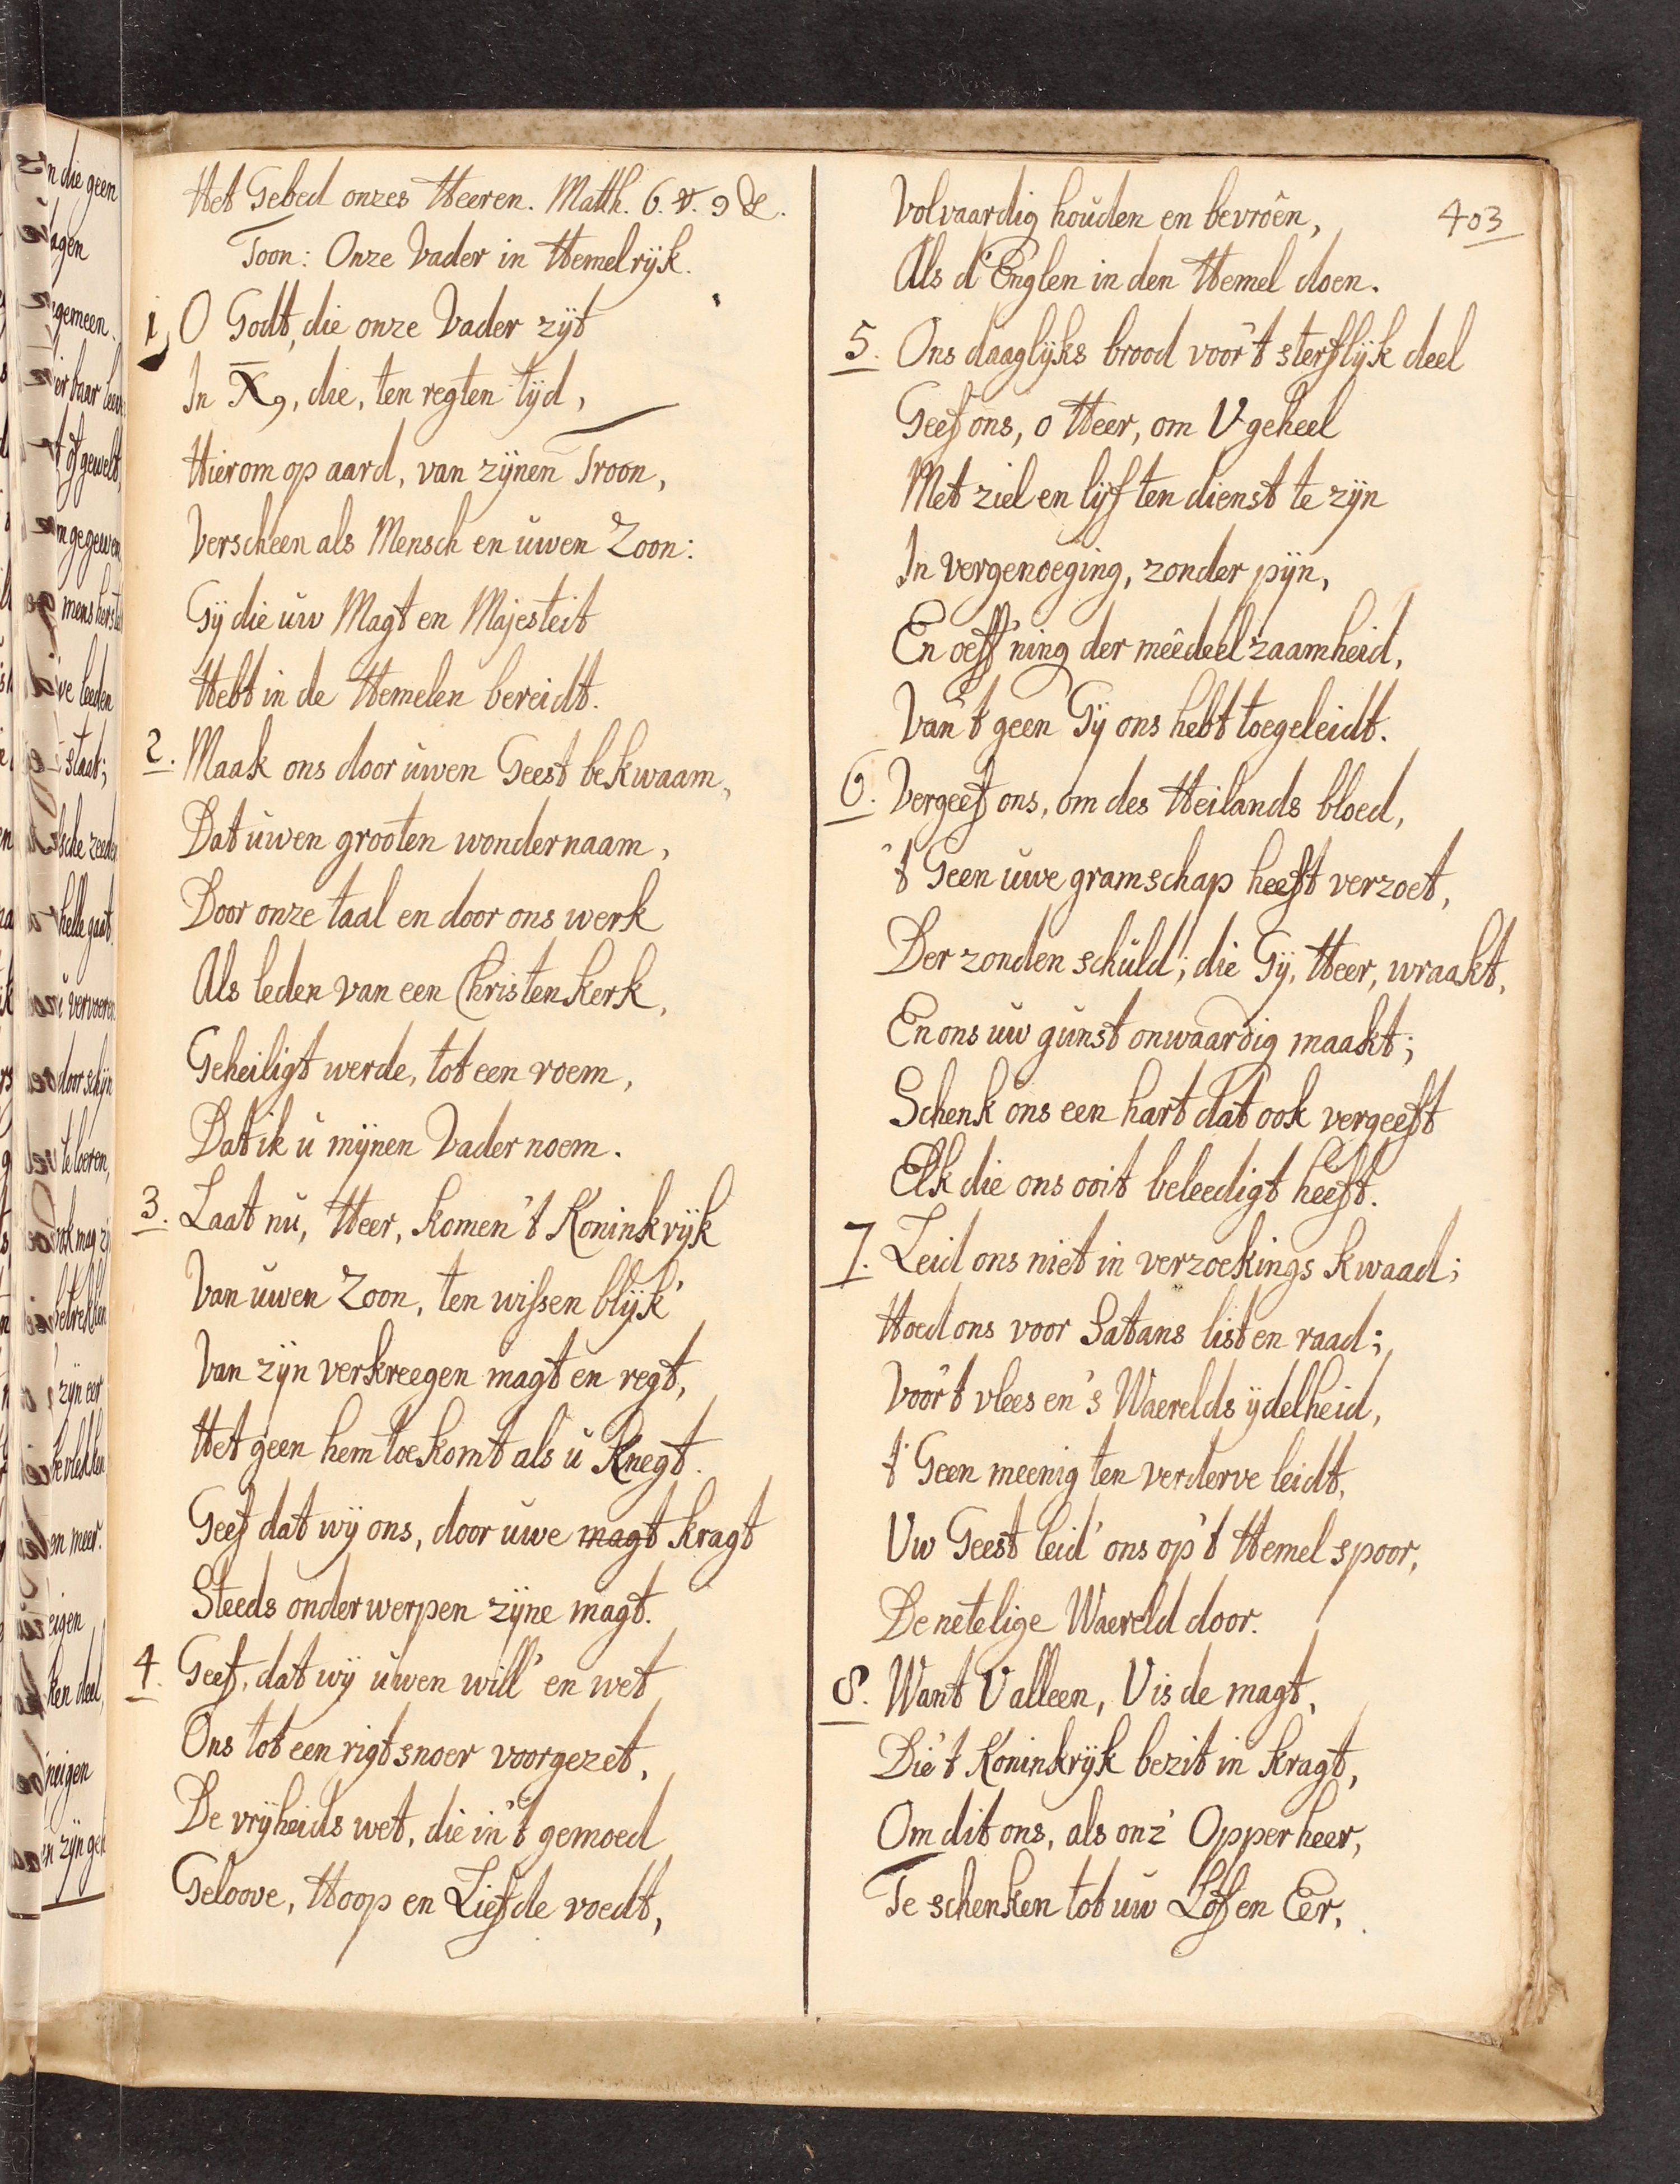 Het Gebed onzes Heeren. Matth. 6. v. 9 &.
Toon: Onze Vader in Hemelryk.
1, O Godt, die onze Vader zÿt
In X9, die, ten regten tÿd,
Hierom op aard, van zÿnen Troon,
Verscheen als Mensch en uwen Zoon:
Gÿ die uw Magt en Majesteit
Hebt in de Hemelen bereidt.
2. Maak ons door uwen Geest bekwaam,
Dat uwen grooten wondernaam,
Door onze taal en door ons werk
Als leden van een Christen kerk,
Geheiligt werde, tot een roem,
Dat ik u mÿnen Vader noem.
3. Laat nu, Heer, komen 't Koninkrÿk
Van uwen Zoon, ten wissen blÿk'
Van zÿn verkreegen magt en regt,
Het geen hem toekomt als u Knegt.
Geef dat wÿ ons, door uwe magt kragt
Steeds onderwerpen zÿne magt.
4. Geef, dat wÿ uwen will' en wet
Ons tot een rigtsnoer voorgezet,
De vrÿheids wet, die in 't gemoed
Geloove, Hoop en Liefde voedt,
403
Volvaardig houden en bevroên,
Als d'Englen in den Hemel doen.
5. Ons daaglÿks brood voor 't sterflÿk deel
Geef ons, o Heer, om U geheel
Met ziel en lÿf ten dienst te zÿn
In vergenoeging, zonder pÿn,
En oeff'ning der mêedeelzaamheid,
Van 't geen Gÿ ons hebt toegeleidt.
6. Vergeef ons, om des Heilands bloed,
't Geen uwe gramschap heeft verzoet,
Der zonden schuld; die Gÿ, Heer, wraakt,
En ons uw gunst onwaardig maakt;
Schenk ons een hart dat ook vergeeft
Elk die ons ooit beleedigt heeft.
7. Leid ons niet in verzoekings kwaad;
Hoed ons voor Satans list en raad;
Voor 't vlees en 's Waerelds ÿdelheid,
't Geen meenig ten verderve leidt,
Uw Geest leid' ons op 't Hemel spoor,
De netelige Waereld door.
8. Want U alleen, U is de magt,
Die 't Koninkrÿk bezit in kragt,
Om dit ons, als onz' Opperheer,
Te schenken tot uw Lof en Eer,